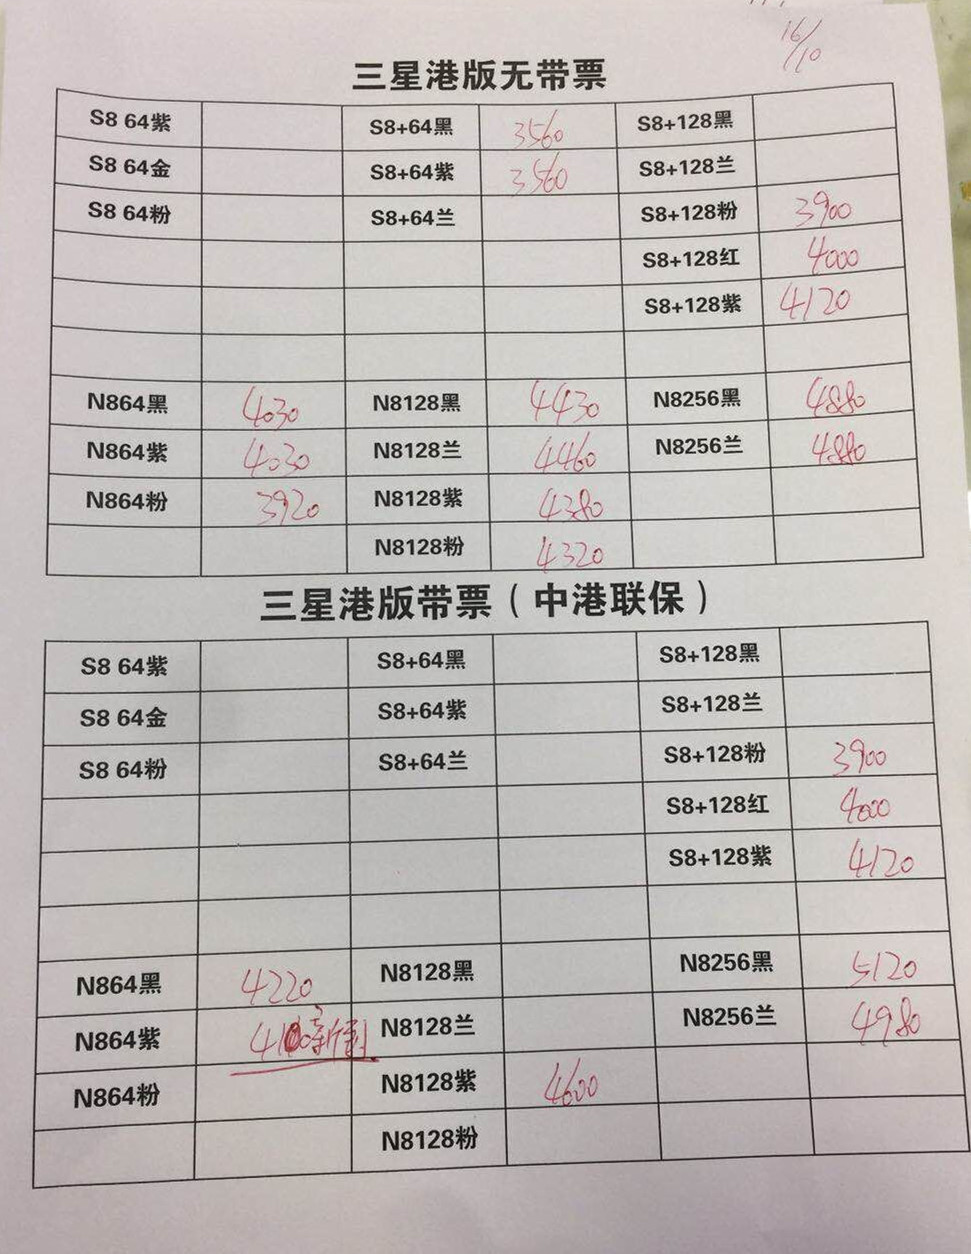 16/10
三星港版无带票
S8 64紫 S8+64黑 3560 S8+128黑
S8 64金 S8+64紫 3560 S8+128兰
S8 64粉 S8+64兰 S8+128粉 3900
S8+128红 4000
S8+128紫 4120
N864黑 4030 N8128黑 4430 N8256黑 4880
N864紫 4030 N8128兰 4460 N8256兰 4880
N864粉 3920 N8128紫 4380
N8128粉 4320
三星港版带票（中港联保）
S8 64紫 S8+64黑 S8+128黑
S8 64金 S8+64紫 S8+128兰
S8 64粉 S8+64兰 S8+128粉 3900
S8+128红 4000
S8+128紫 4120
N864黑 4220 N8128黑 N8256黑 5120
N864紫 新到 N8128兰 N8256兰 4980
N864粉 N8128紫 4600
N8128粉